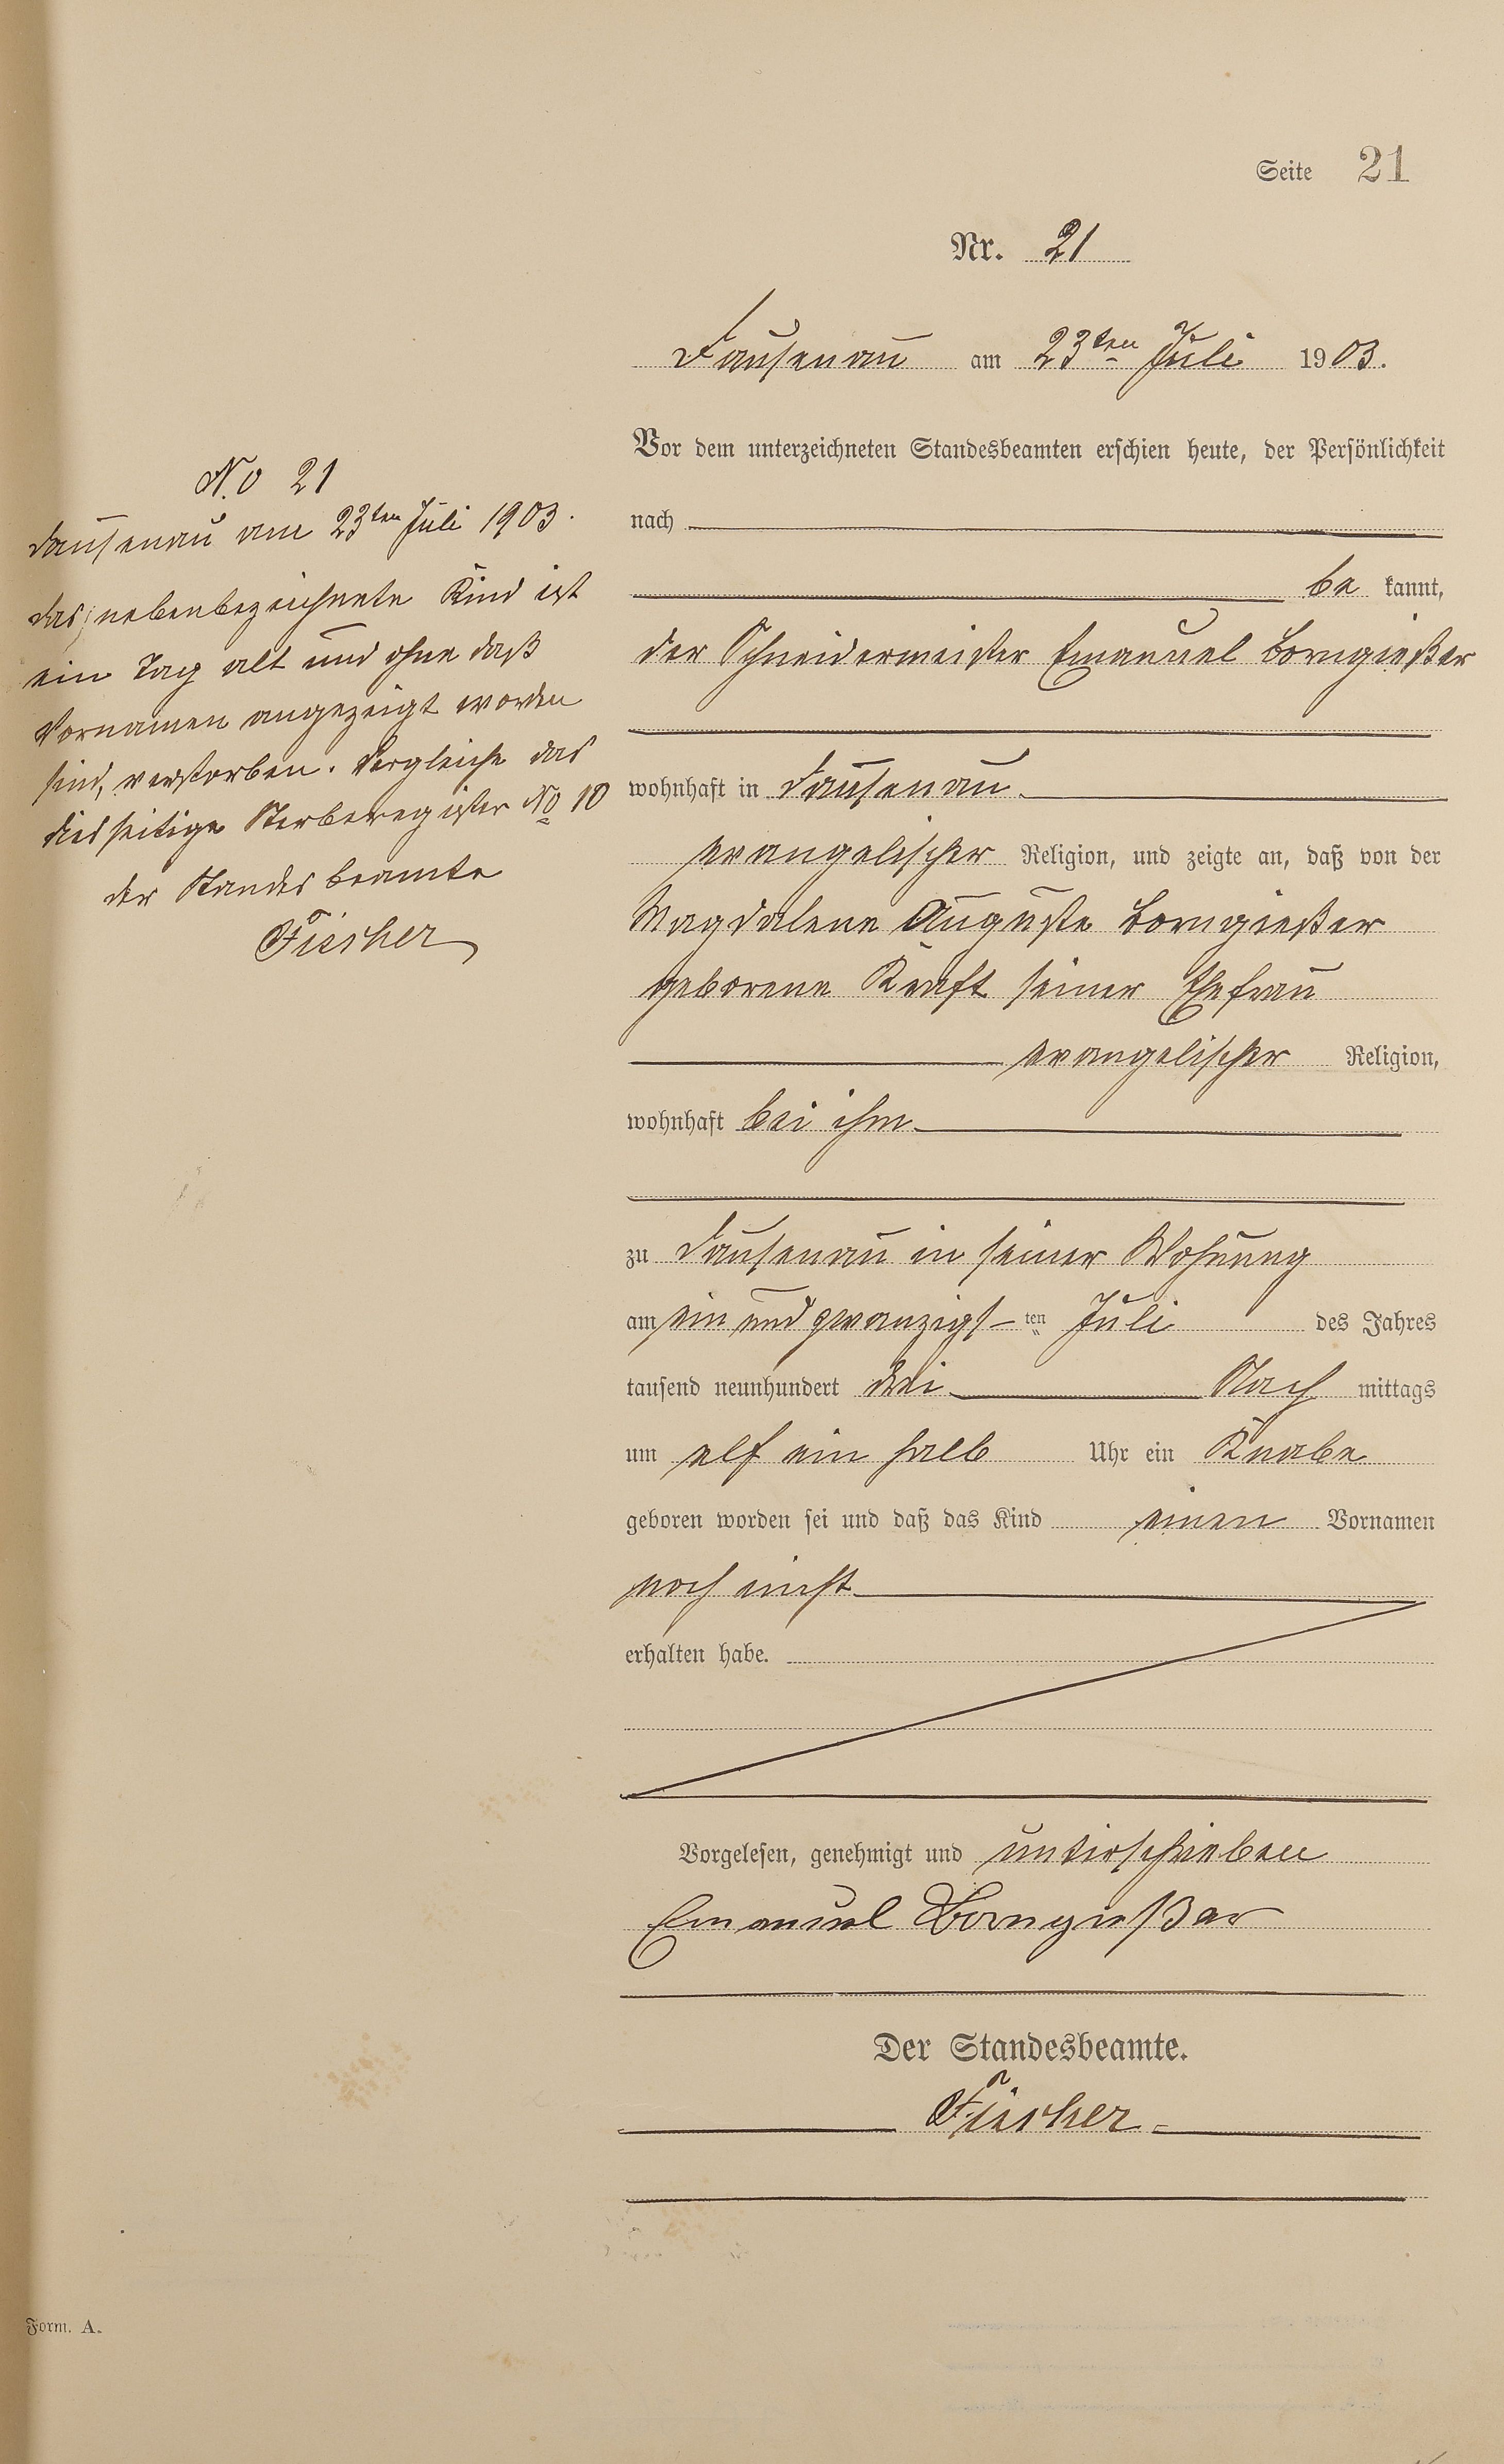 Seite 21
Nr. 21
Dausenau am 23ten Juli 1903.
Vor dem unterzeichneten Standesbeamten erschien heute, der Persönlichkeit
nach
be kannt,
der Schneidermeister Emanuel Borngießer
wohnhaft in Dausenau
evangelischer Religion, und zeigte an, daß von der
Magdalene Auguste Borngießer
geborene Kraft seiner Ehefrau
evangelischer Religion,
wohnhaft bei ihm
zu Dausenau in seiner Wohnung
am ein und zwanzigs-ten Juli des Jahres
tausend neunhundert drei Nach mittags
um elf ein halb Uhr ein Knabe
geboren worden sei und daß das Kind einen Vornamen
noch nicht
erhalten habe.
Vorgelesen, genehmigt und unterschrieben
Emanuel Borngießer
Der Standesbeamte.
Fischer
No 21
Dausenau am 23ten Juli 1903.
das nebenbezeichnete Kind ist
ein Tag alt und ohne daß
Vornamen angezeigt worden
sind, verstorben. Vergleiche das
diesseitige Sterberegister No 10
der Standesbeamte
Fischer
Form. A.